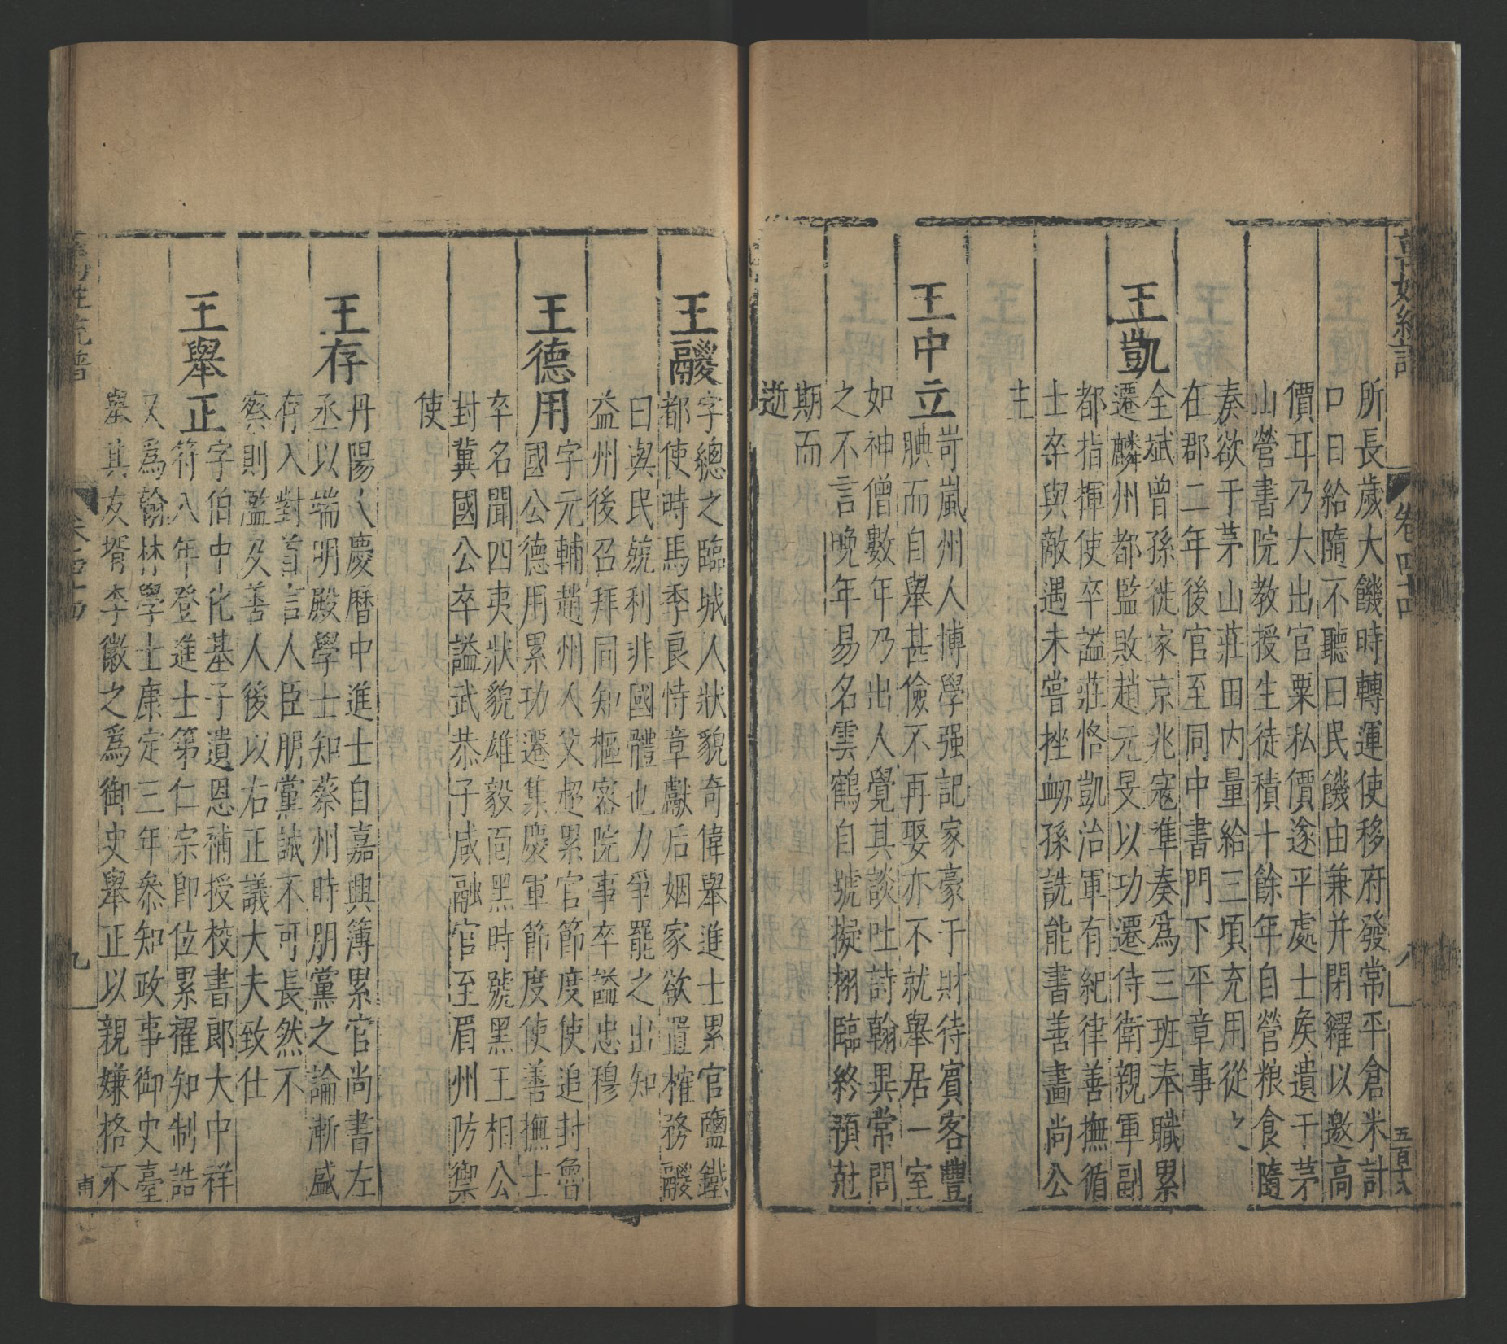 萬姓統譜 卷一百四十四 八 五百十六
所長歲大饑時轉運使移府發常平倉米計
口日給隨不聽曰民饑由兼并閉糴以邀高
價耳乃大出官粟私價遂平處士矦遺于茅
山營書院教授生徒積十餘年自營粮食隨
奏欲于茅山莊田内量給三頃充用從之
在郡二年後官至同中書門下平章事
王凱
全斌曾孫徙家京兆寇準奏爲三班奉職累
遷麟州都監敗趙元旻以功遷侍衛親軍副
都指揮使卒謚莊恪凱治軍有紀律善撫循
士卒與敵遇未嘗挫衂孫詵能書善畫尚公
主
王中立
岢嵐州人博學强記家豪于財待賓客豐
腆而自舉甚儉不再娶亦不就舉居一室
如神僧數年乃出人覺其談吐詩翰異常問
之不言晚年易名雲鶴自號擬栩臨終預尅
期而
逝
王鬷
字總之臨城人狀貌奇偉舉進士累官鹽鐵
都使時馬季良恃章獻后姻家欲置榷務鬷
曰與民競利非國體也力爭罷之出知
益州後召拜同知樞密院事卒謚忠穆
王德用
字元輔趙州人父超累官節度使追封魯
國公德用累功遷集慶軍節度使善撫士
卒名聞四夷狀貌雄毅面黑時號黑王相公
封冀國公卒謚武恭子咸融官至眉州防禦
使
王存
丹陽人慶曆中進士自嘉興簿累官尚書左
丞以端明殿學士知蔡州時朋黨之論漸盛
存入對首言人臣朋黨誠不可長然不
察則濫及善人後以右正議大夫致仕
王舉正
字伯中化基子遺恩補授校書郎大中祥
符八年登進士第仁宗即位累擢知制誥
又爲翰林學士康定三年叅知政事御史臺
舉其友壻李徽之爲御史舉正以親嫌格不
萬姓統譜 九